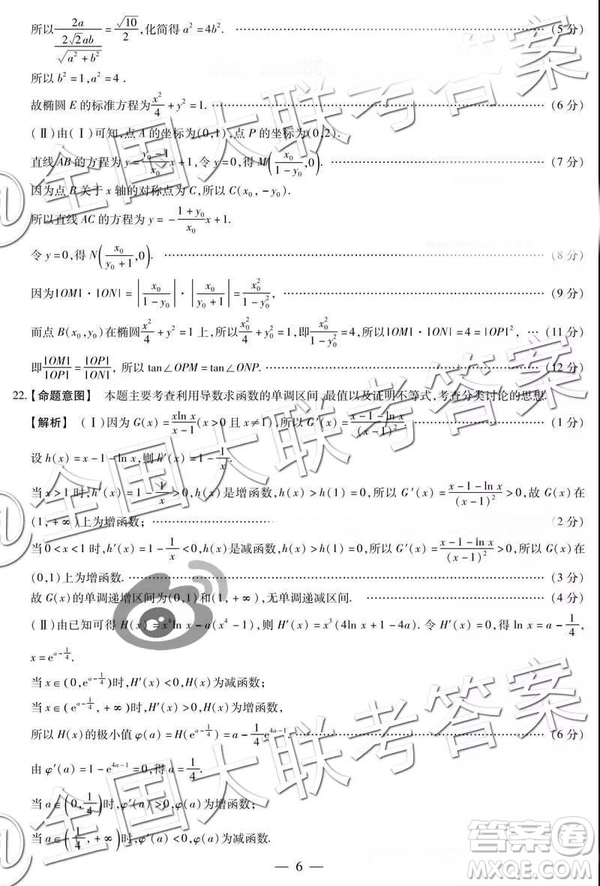 所以\frac{2a}{\frac{2\sqrt{2}ab}{\sqrt{a^2+b^2}}}=\frac{\sqrt{10}}{2},化简得 a²=4b². (5分)
所以 b²=1,a²=4.
故椭圆 E 的标准方程为\frac{x²}{4}+y²=1. (6分)
(Ⅱ)由(Ⅰ)可知,点 A 的坐标为(0,1),点 P 的坐标为(0,2).
直线 AB 的方程为 y=\frac{y_0-1}{x_0}x+1,令 y=0,得 M(\frac{x_0}{1-y_0},0). (7分)
因为点 B 关于 x 轴的对称点为 C,所以 C(x_0,-y_0).
所以直线 AC 的方程为 y=-\frac{1+y_0}{x_0}x+1.
令 y=0,得 N(\frac{x_0}{y_0+1},0). (8分)
因为|OM|·|ON|=|\frac{x_0}{1-y_0}|·|\frac{x_0}{1+y_0}|=\frac{x_0^2}{1-y_0^2}, (9分)
而点 B(x_0,y_0)在椭圆\frac{x²}{4}+y²=1 上,所以|OM|·|ON|=\frac{x_0^2}{1-y_0^2}=4=|OP|², … (11分)
即\frac{|OM|}{|OP|}=\frac{|OP|}{|ON|},所以 tan∠OPM=tan∠ONP. (12分)
22.【命题意图】 本题主要考查利用导数求函数的单调区间、最值以及证明不等式,考查分类讨论的思想.
【解析】 (Ⅰ)因为 G(x)=\frac{x\ln x}{x-1}(x>0 且 x≠1),所以 G′(x)=\frac{x-1-\ln x}{(x-1)^2}. (1分)
设 h(x)=x-1-ln x,则 h′(x)=1-\frac{1}{x}.
当 x>1 时,h′(x)=1-\frac{1}{x}>0,h(x)是增函数,h(x)>h(1)=0,所以 G′(x)=\frac{x-1-\ln x}{(x-1)^2}>0,故 G(x)在
(1,+∞)上为增函数; (2分)
当 0<x<1 时,h′(x)=1-\frac{1}{x}<0,h(x)是减函数,h(x)>h(1)=0,所以 G′(x)=\frac{x-1-\ln x}{(x-1)^2}>0,所以 G(x)在
(0,1)上为增函数. (3分)
故 G(x)的单调递增区间为(0,1)和(1,+∞),无单调递减区间. (4分)
(Ⅱ)由已知可得 H(x)=x⁴ln x-a(x⁴-1),则 H′(x)=x³(4ln x+1-4a). 令 H′(x)=0,得 ln x=a-\frac{1}{4},
x=e^{a-\frac{1}{4}}.
当 x∈(0,e^{a-\frac{1}{4}})时,H′(x)<0,H(x)为减函数;
当 x∈(e^{a-\frac{1}{4}},+∞)时,H′(x)>0,H(x)为增函数,
所以 H(x)的极小值 φ(a)=H(e^{a-\frac{1}{4}})=a-\frac{1}{4}e^{4a-1}. (6分)
由 φ′(a)=1-e^{4a-1}=0,得 a=\frac{1}{4}.
当 a∈(0,\frac{1}{4})时,φ′(a)>0,φ(a)为增函数;
当 a∈(\frac{1}{4},+∞)时,φ′(a)<0,φ(a)为减函数.
— 6 —
@全国大联考答案
答案圈
MXQE.COM